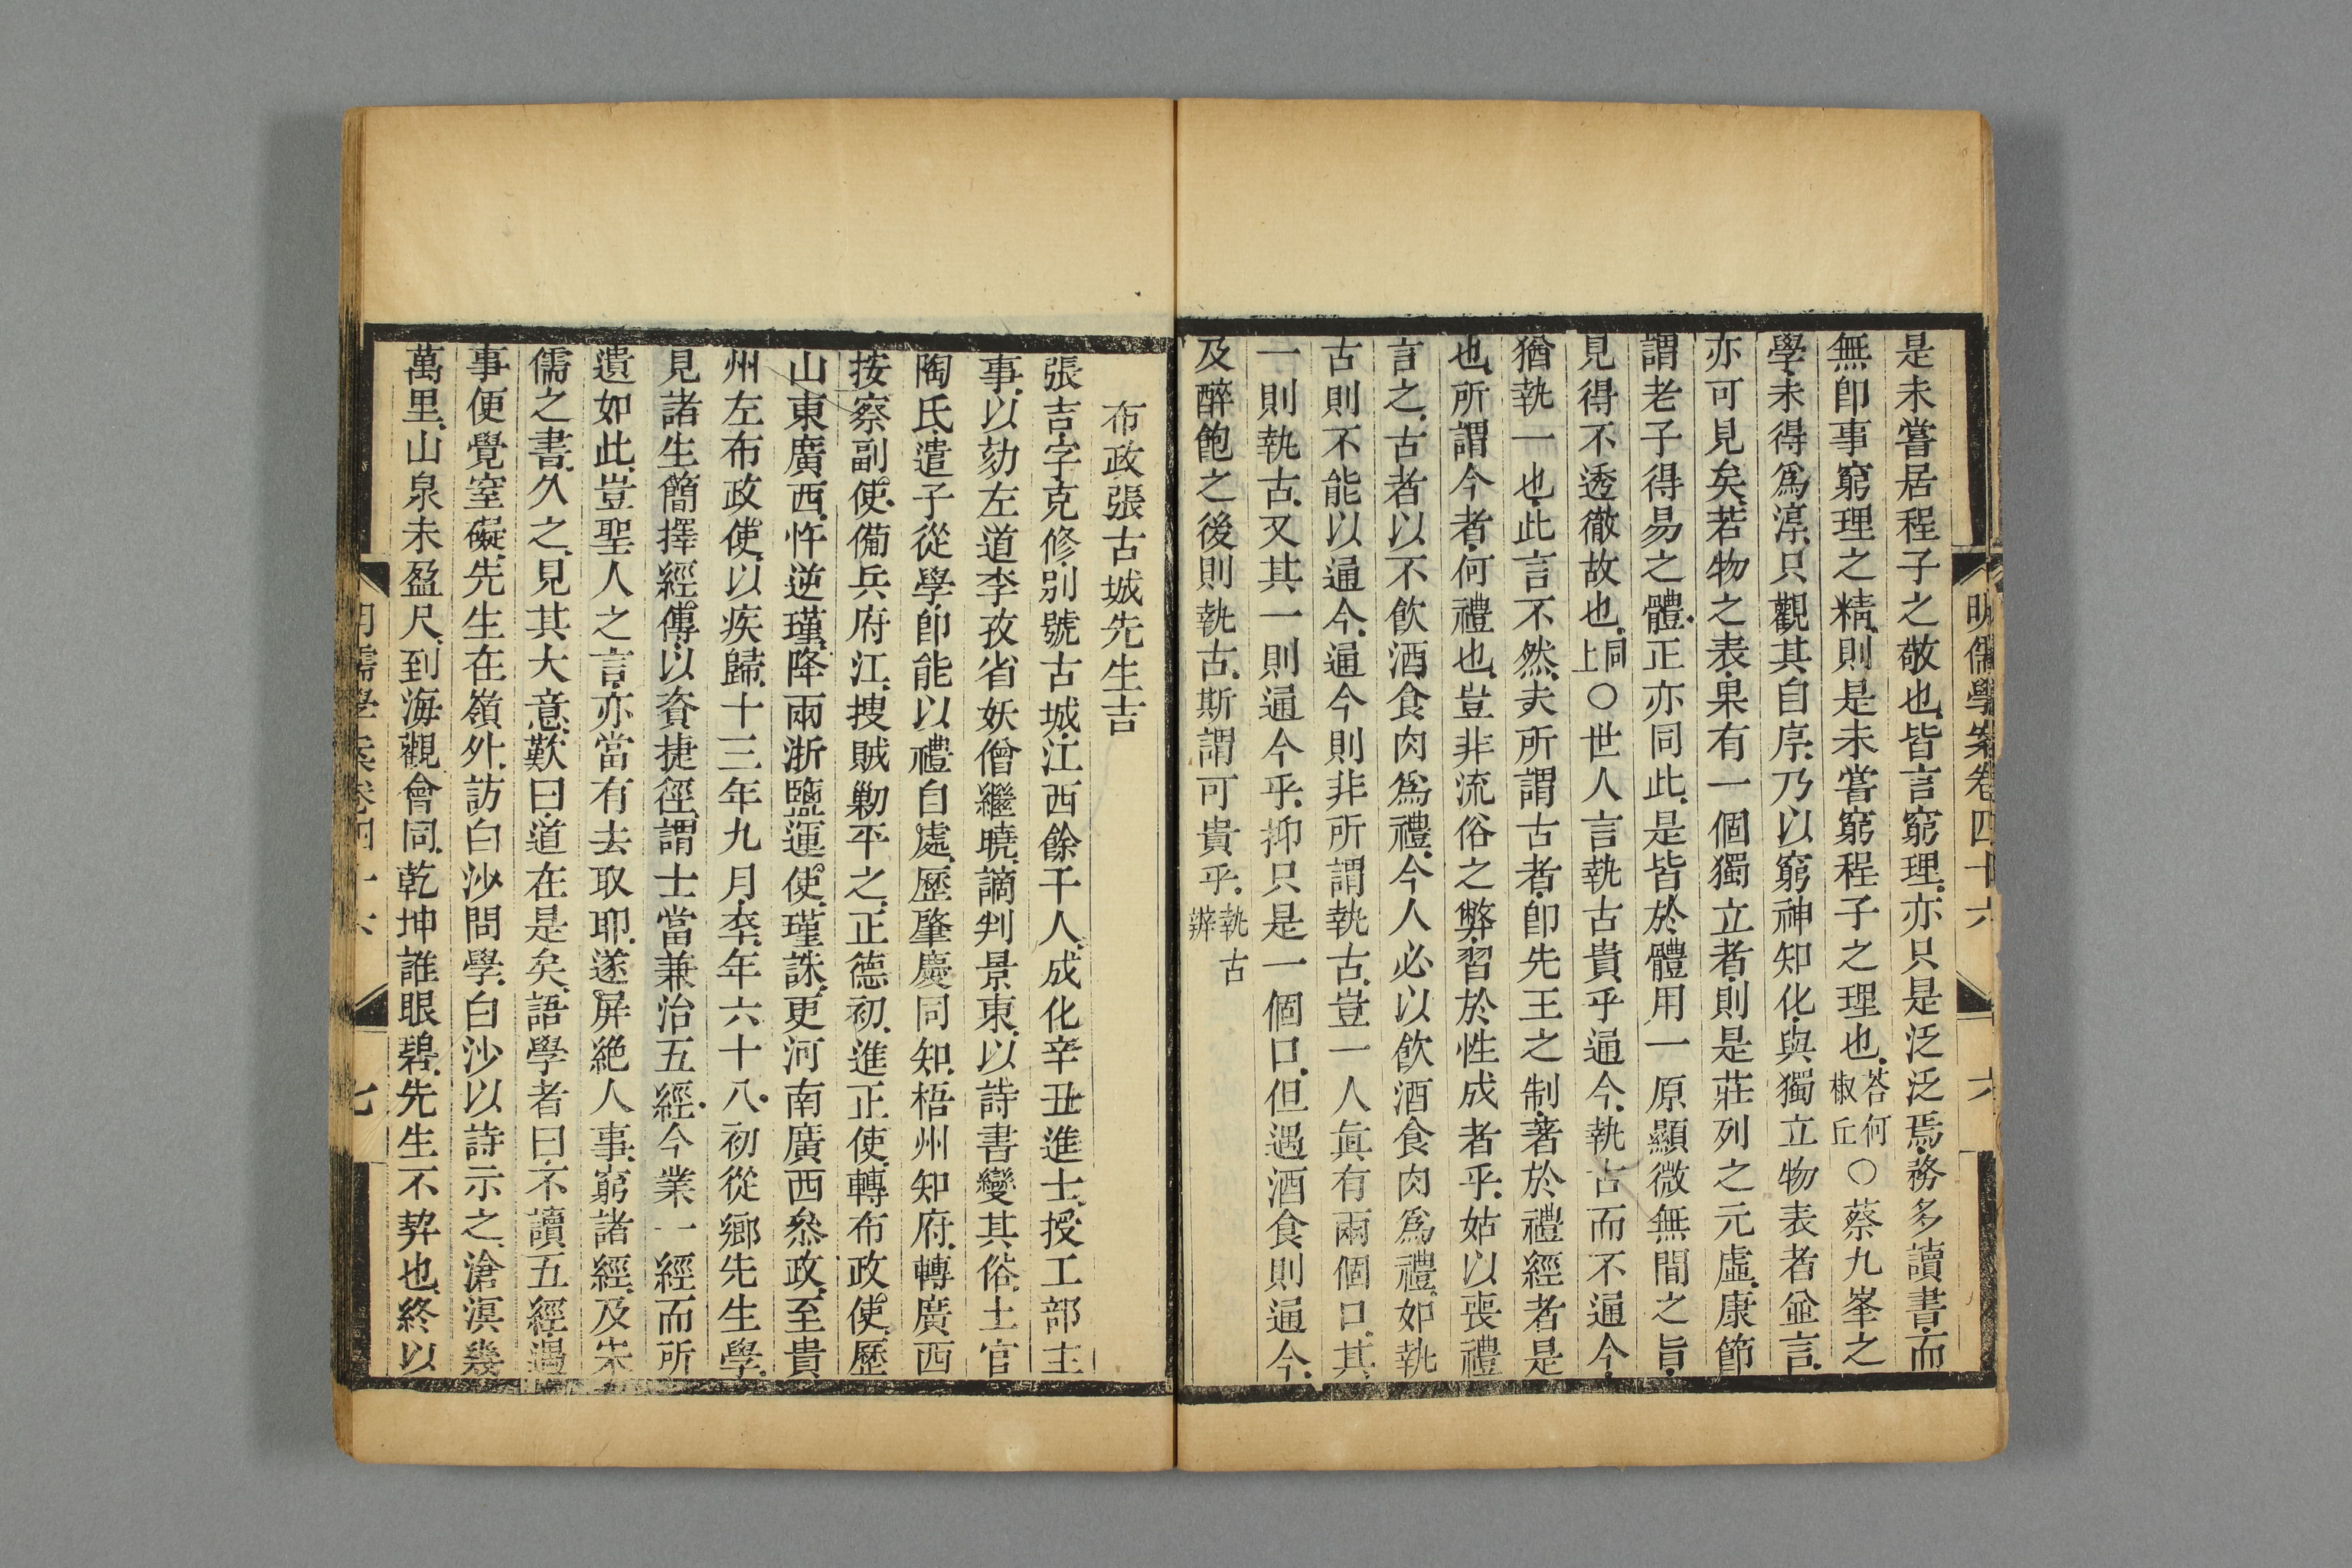 明儒學案卷四十六 六
是未嘗居程子之敬也皆言窮理亦只是泛泛焉務多讀書而
無卽事窮理之精則是未嘗窮程子之理也荅何椒丘○蔡九峯之
學未得爲淳只觀其自序乃以窮神知化與獨立物表者並言
亦可見矣若物之表果有一個獨立者則是莊列之元虛康節
謂老子得易之體正亦同此是皆於體用一原顯微無間之旨
見得不透徹故也同上○世人言執古貴乎通今執古而不通今
猶執一也此言不然夫所謂古者卽先王之制著於禮經者是
也所謂今者何禮也豈非流俗之弊習於性成者乎姑以喪禮
言之古者以不飲酒食肉爲禮今人必以飲酒食肉爲禮如執
古則不能以通今通今則非所謂執古豈一人眞有兩個口其
一則執古又其一則通今乎抑只是一個口但遇酒食則通今
及醉飽之後則執古斯謂可貴乎執古辦
布政張古城先生吉
張吉字克修别號古城江西餘干人成化辛丑進士授工部主
事以劾左道李孜省妖僧繼曉謫判景東以詩書變其俗土官
陶氏遣子從學卽能以禮自處歷肇慶同知梧州知府轉廣西
按察副使備兵府江搜賊勦平之正德初進正使轉布政使歷
山東廣西忤逆瑾降兩浙鹽運使瑾誅更河南廣西叅政至貴
州左布政使以疾歸十三年九月卒年六十八初從鄉先生學
見諸生簡擇經傳以資捷徑謂士當兼治五經今業一經而所
遺如此豈聖人之言亦當有去取耶遂屏絶人事窮諸經及宋
儒之書久之見其大意歎曰道在是矣語學者曰不讀五經遇
事便覺窒礙先生在嶺外訪白沙問學白沙以詩示之滄溟幾
萬里山泉未盈尺到海觀會同乾坤誰眼碧先生不契也終以
明儒學案卷四十六 七